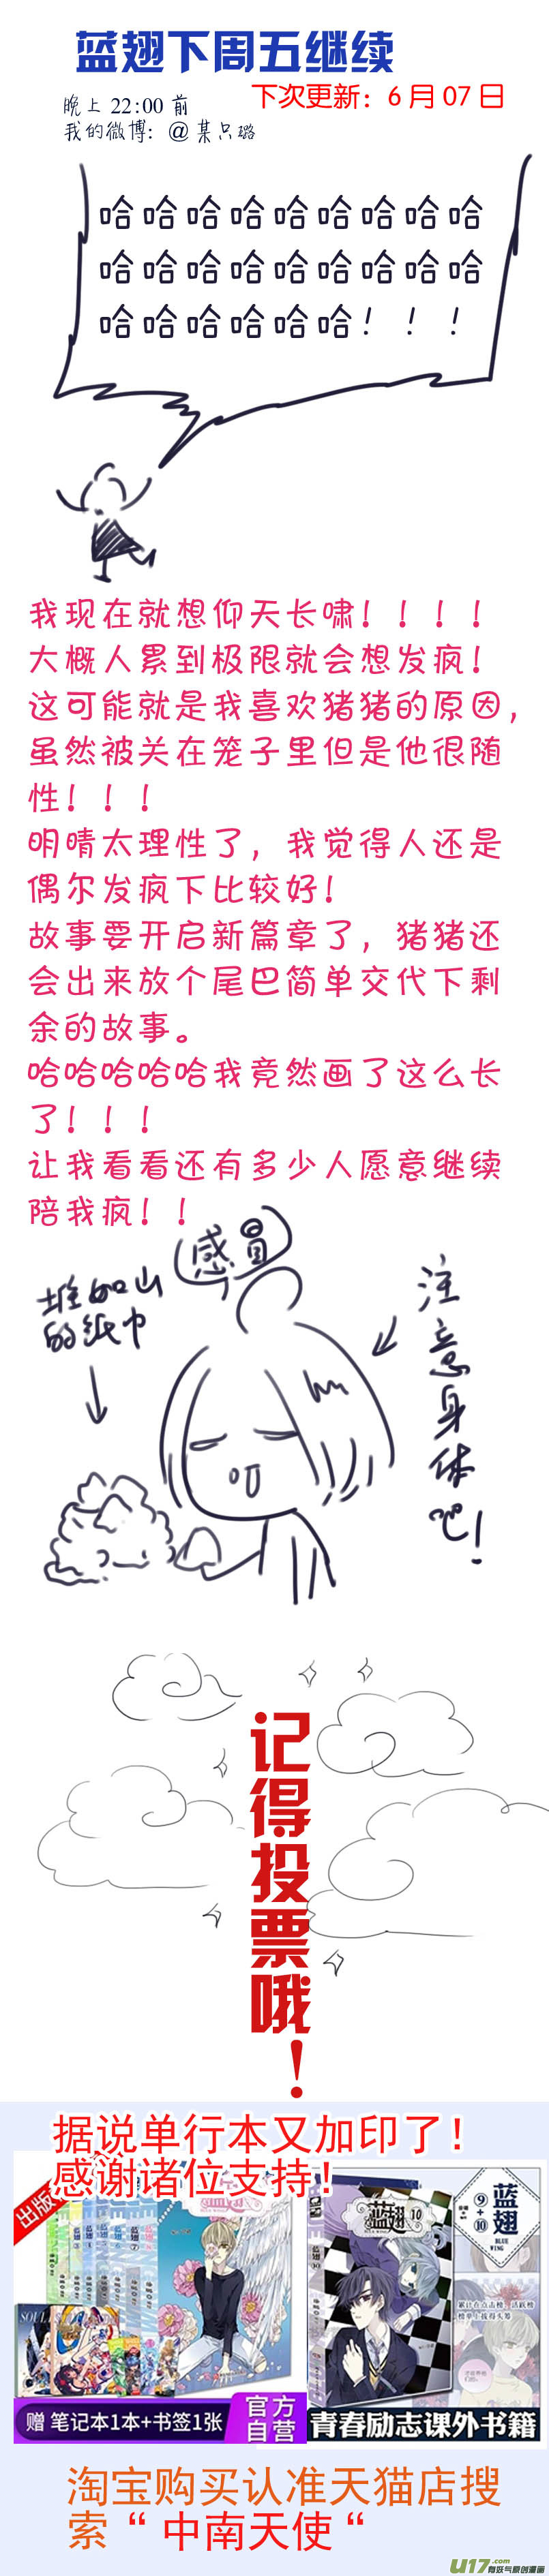 蓝翅下周五继续
下次更新：6月07日
晚上 22:00 前
我的微博：@某只璐
哈哈哈哈哈哈哈哈哈
哈哈哈哈哈哈哈哈哈
哈哈哈哈哈哈！！！
我现在就想仰天长啸！！！！
大概人累到极限就会想发疯！
这可能就是我喜欢猪猪的原因，
虽然被关在笼子里但是他很随
性！！！
明晴太理性了，我觉得人还是
偶尔发疯下比较好！
故事要开启新篇章了，猪猪还
会出来放个尾巴简单交代下剩
余的故事。
哈哈哈哈哈我竟然画了这么长
了！！！
让我看看还有多少人愿意继续
陪我疯！！
感冒
堆如山
的纸巾
注意身体吧！
记得投票哦！
据说单行本又加印了！
感谢诸位支持！
出版
蓝翅
SOUL
蓝翅 10
⑨+⑩
蓝翅
BLUE WING
累计在点击榜、活跃榜
榜单上拔得头筹
赠 笔记本1本+书签1张
官方
自营
青春励志课外书籍
淘宝购买认准天猫店搜
索“中南天使“
U17.com
有妖气原创漫画